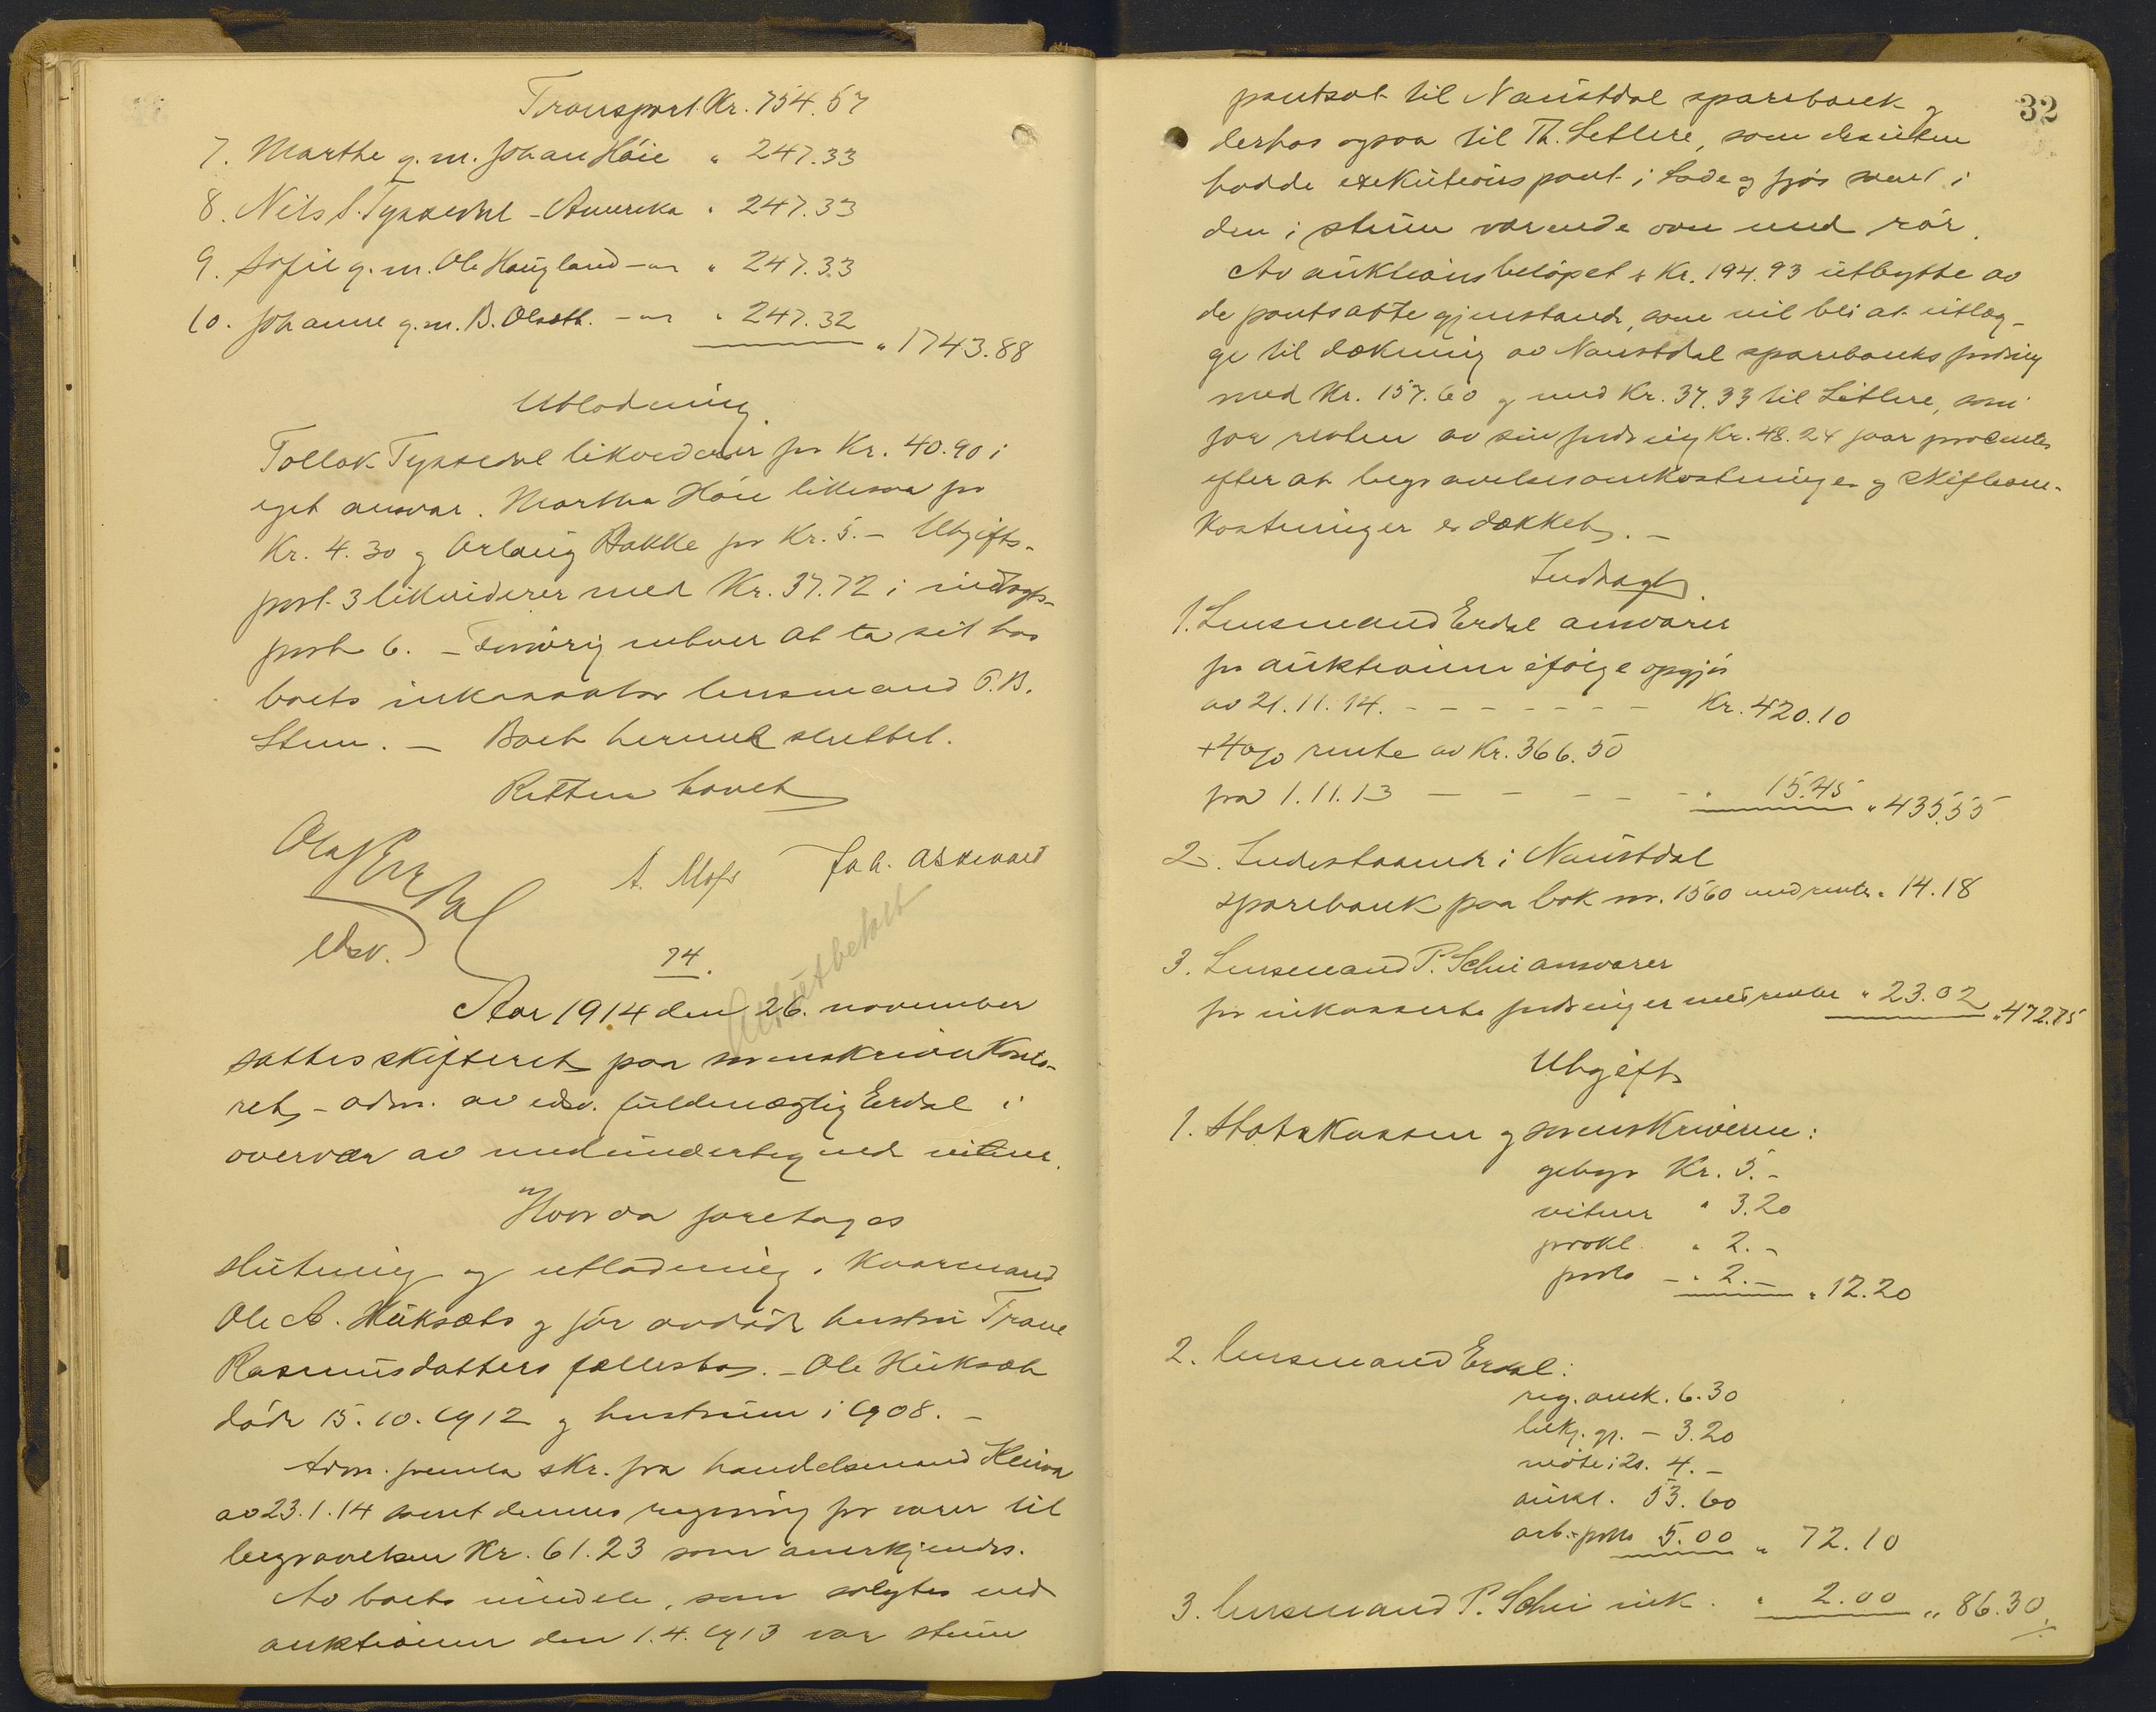 Transport Kr. 754.57
7. Marthe g. m. Johan Höie " 247.33
8. Nils S. Tyssedal - Amerika " 247.33
9. Sofie g. m. Ole Haugland - " - " 247.33
10. Johanne g. m. B. Olseth. - " - " 247.32
" 1743.88
Utlodning
Tollak Tyssedal likviderer for Kr. 40.90 i
eget ansvar. Martha Höie likesaa for
Kr. 4.30 og Bakke for Kr. 5.- Utgifts-
post 3 likviderer med Kr. 37.72 i indtægts-
post 6. - Forövrig enhver at ta sit hos
boets inkassator lensmand P.B.
Stun. - Boet hermed sluttet.
Retten hævet
Olaf Erdal
edsv.
A. Moss Joh. Askevold
Alt utbetalt
74.
Aar 1914 den 26. november
sattes skifteret paa sorenskriverkonto-
ret, - adm. av edsv. fuldmægtig Erdal i
overvær av medundertegnede vitner.
Hvorda foretoges
slutning og utlodning i kaarmand
Ole A. Huksæts og för avdöde hustru Trane
Rasmusdatters fællesbo. - Ole Huksæt
döde 15.10.1912 og hustruen i 1908. -
Adm. fremla skr. fra handelsmand Kleiva
av 23.1.14 samt dennes regning for varer til
begravelsen Kr. 61.23 som anerkjendes.
Av boets eiendele, som solgtes ved
auktionen den 1.4.1913 var stuen
32
pantsat til Naustdal sparebank og
derhos ogsaa til Th. Settere, som desuten
hadde exekutionspant i lade og fjös samt i
den i stuen værende ovn med rör.
Av auktionsbelöpet er Kr. 194.93 utbytte av
de pantsatte gjenstande, som vil bli at utlæg-
ge til dækning av Naustdal sparebanks fordring
med Kr. 157.60 og med Kr. 37.33 til Settere, som
for resten av sin fordring Kr. 48.24 faar procenter
efter at begravelsesomkostninger og skifteom-
kostninger er dækket. -
Indtægt
1. Lensmand Erdal ansvarer
for auktionen ifölge opgjör
av 21.11.14. - - - - - - - Kr. 420.10
+ 4 % rente av Kr. 366.50
fra 1.11.13 - - - - - " 15.45 " 435.55
2. Indestaaende i Naustdal
sparebank paa bok nr. 1560 med renter " 14.18
3. Lensmand P. Schei ansvarer
for inkasserte fordringer med renter " 23.02 " 472.75
Utgift
1. Statskassen og sorenskriveren:
gebyr Kr. 5.-
vitner " 3.20
prokl. " 2.-
porto - " 2.- " 12.20
2. lensmand Erdal:
reg. auk. 6.30
bekj. gj. - 3.20
möte i 2s. 4.-
aukt. 53.60
arb.+porto 5.00 " 72.10
3. lensmand P. Schei ink. " 2.00 " 86.30